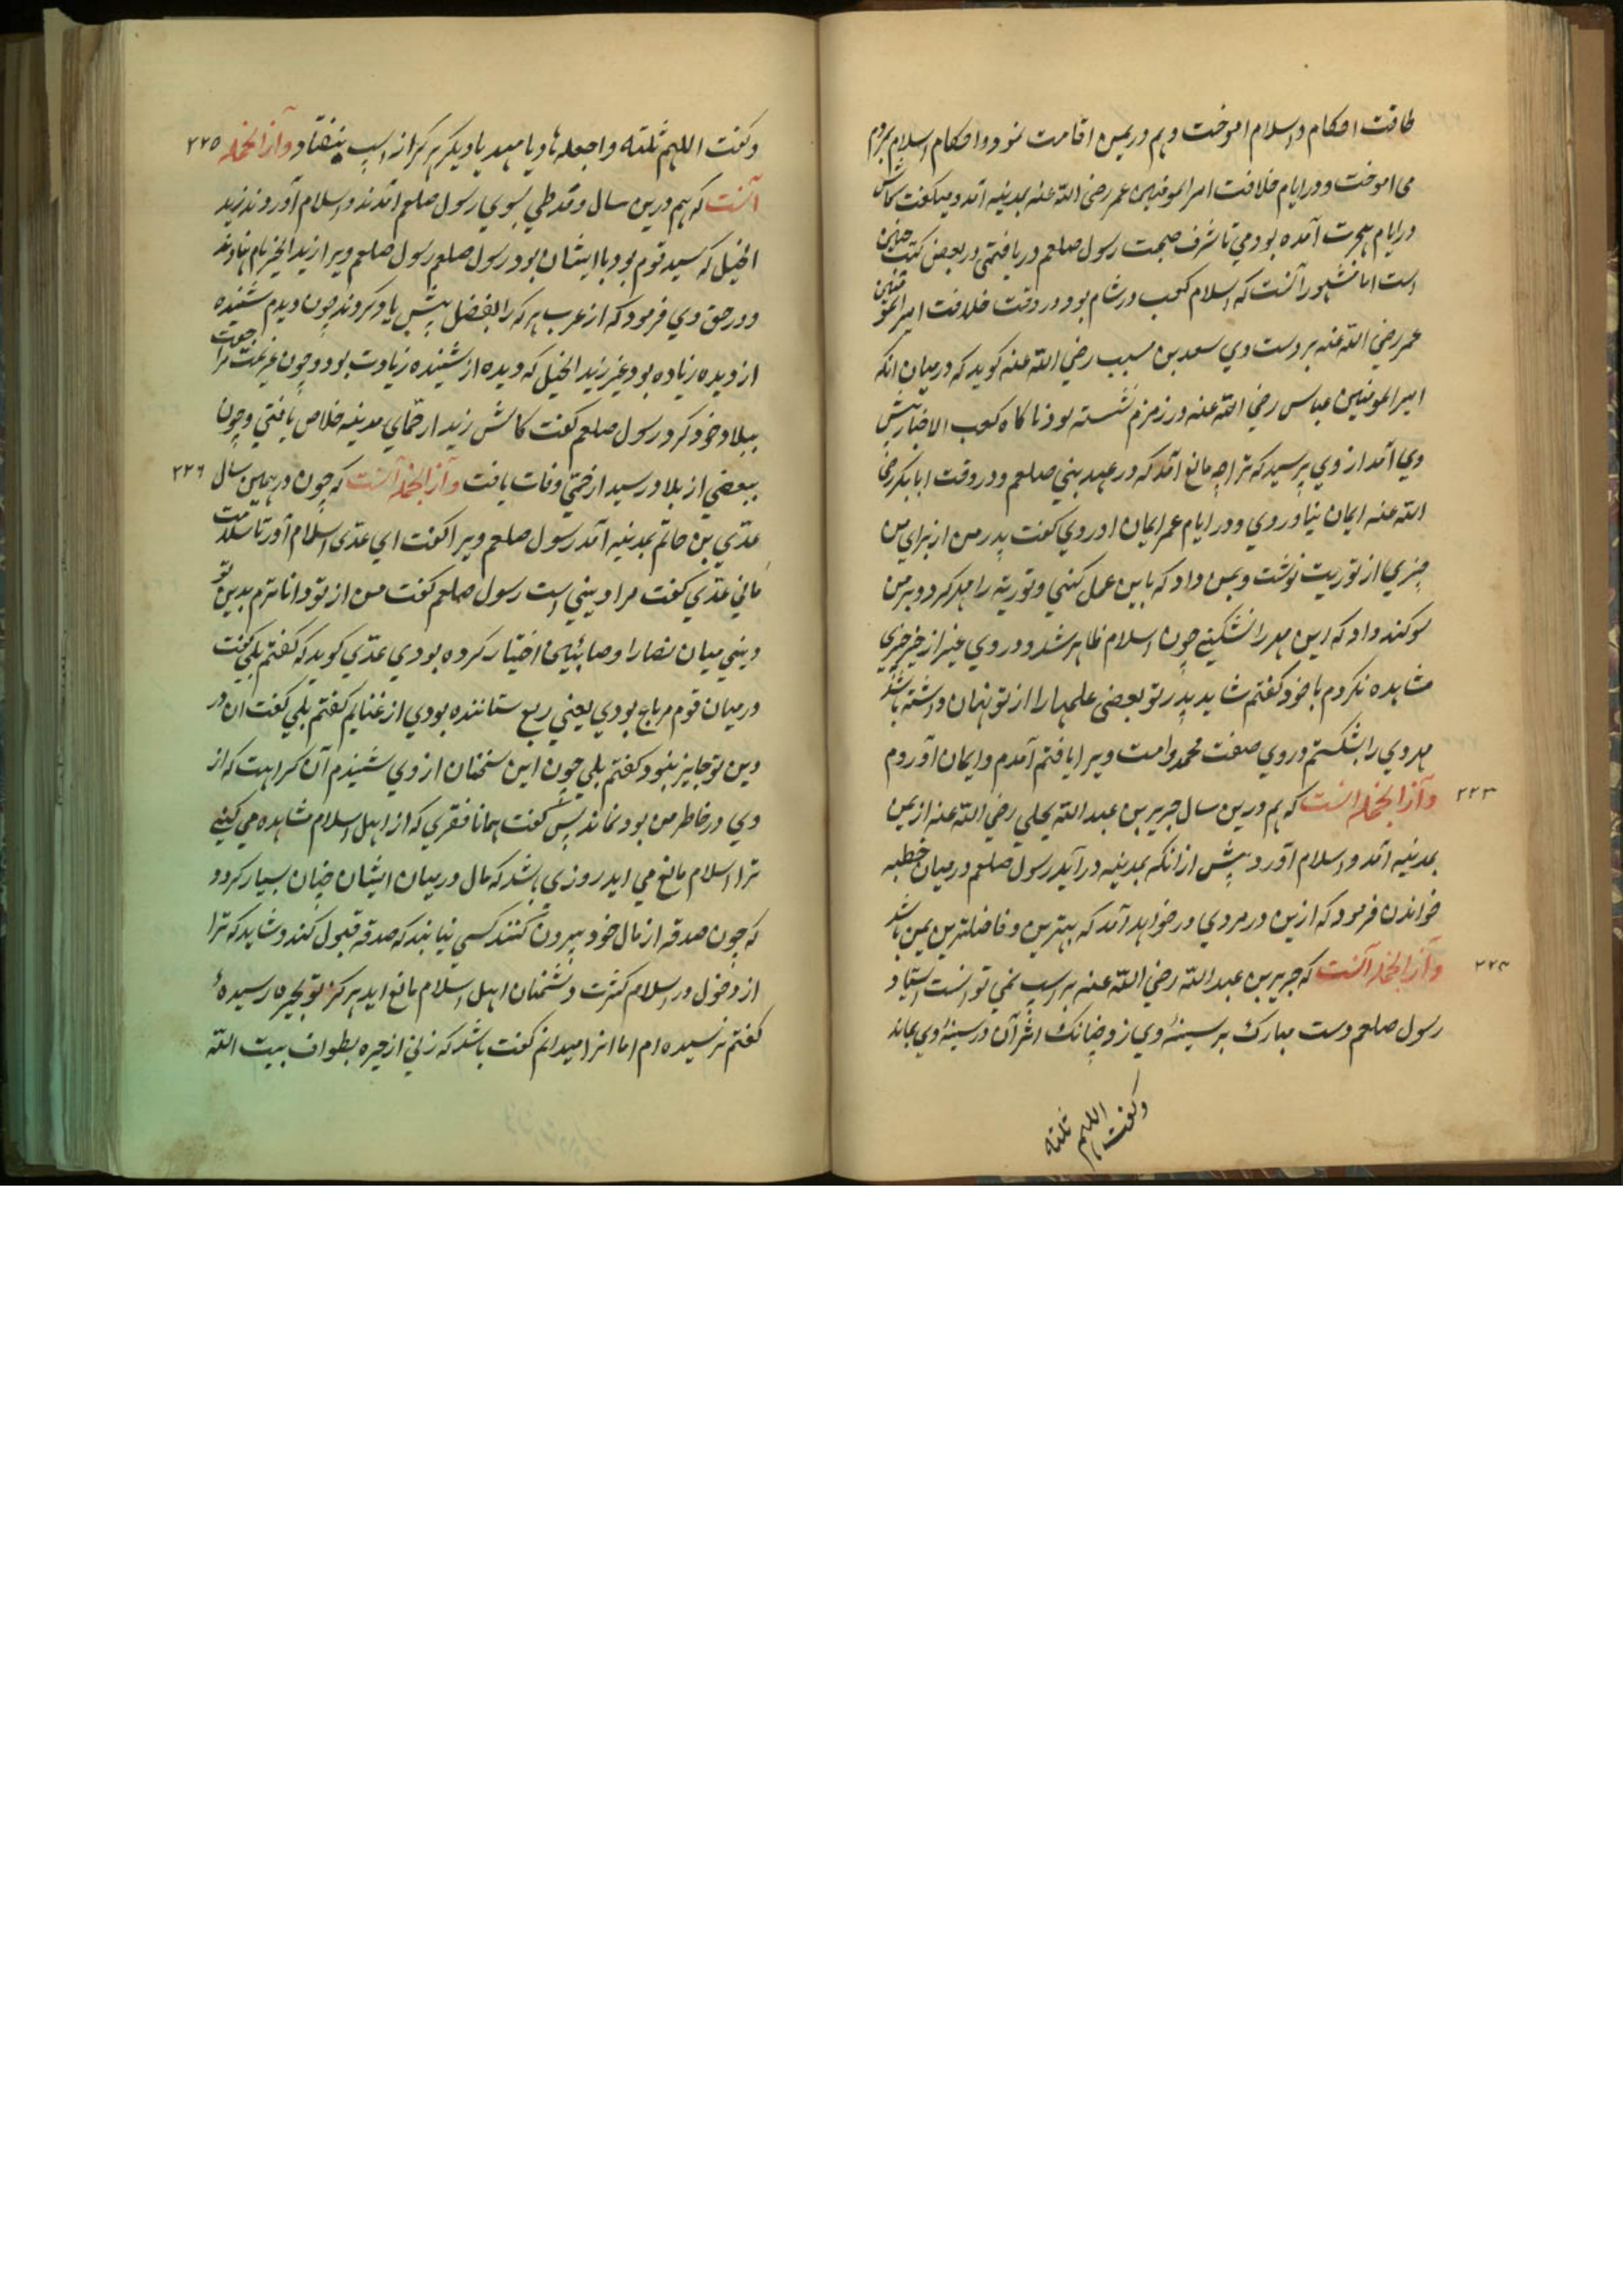 طاقت احکام و اسلام اموخت و هم در یمن اقامت نمود و احکام اسلام بمردم
می اموخت و در ایام خلافت امیر المومنین عمر رضی الله عنه بمدینه آمد و میکفت کاش
در ایام هجرت آمده بودمی تا شرف صحبت رسول صلعم دریافتمی در بعض کتب چنین
است اما مشهور آنست که اسلام کعب در شام بود در وقت خلافت امیر المومنین
عمر رضی الله عنه بر دست وی سعد بن مسیب رضی الله عنه کوید که در میان آنکه
امیر المومنین عباس رضی الله عنه در زمزم نشسته بود ناکاه کعب الاخبار پیش
وی آمد از وی پرسید که ترا چه مانع آمد که در عهد نبی صلعم و در وقت ابا بکر رضی
الله عنه ایمان نیاوردی و در ایام عمر ایمان اوردی کفت پدر من از برای من
چیزی از توریت نوشت و بمن داد که باین عمل کنی و توریة را مهر کرد و بر من
سوکند داد که این مهر را نشکنی چون اسلام ظاهر شد و در وی غیر از خیر چیزی
مشاهده نکردم با خود کفتم شاید پدر تو بعضی علمها را از تو نهان داشته باشد
مهر وی را بشکستم در وی صفت محمد و امت ویرا یافتم آمدم و ایمان آوردم
۲۲۳ وآز انجمله انست که هم درین سال جریر بن عبد الله بجلی رضی الله عنه از یمن
بمدینه آمد و اسلام آورد و پیش از انکه بمدینه در آید رسول صلعم در میان خطبه
خواندن فرمود که ازین در مردی در خواهد آمد که بهترین و فاضلترین یمن باشد
۲۲۴ وآز انجمله آنست که جریر بن عبد الله رضی الله عنه بر اسپ نمی توانست استاد
رسول صلعم دست مبارک بر سینهٔ وی زد چنانک اثر آن در سینهٔ وی بماند
وکفت اللهم ثلثه
وکفت اللهم ثلثه واجعله هادیا مهدیا دیکر هرکز از اسپ نیفتاد وآز انجمله ۲۲۵
آنست که هم درین سال وفد طی بسوی رسول صلعم آمدند و اسلام آوردند زید
الخیل که سید قوم بود با ایشان بود رسول صلعم رسول صلعم ویرا زید الخیر نام نهادند
و در حق وی فرمود که از عرب هر که را بفضل پیش یاد کردند چون دیدم شنیده
از دیده زیاده بود غیر زید الخیل که دیده از شنیده زیادت بود و چون عزیمت مراجعت
ببلاد خود کرد رسول صلعم کفت کاش زید از حمای مدینه خلاص یافتی و چون
ببعضی از بلاد رسید از حمی وفات یافت وآز انجمله آنست که چون در همین سال ۲۲۶
عدی بن حاتم بمدینه آمد رسول صلعم ویرا کفت ای عدی اسلام آور تا سلامت
مانی عدی کفت مرا دینی است رسول صلعم کفت من از تو داناترم بدین تو
دینی میان نصارا و صابئی اختیار کرده بودی عدی کوید که کفتم بلی کفت
در میان قوم مرباع بودی یعنی ربع ستاننده بودی از غنایم کفتم بلی کفت ان در
دین تو جایز نبود کفتم بلی چون این سخنان از وی شنیدم آن کراهت که از
وی در خاطر من بود نماند پس کفت همانا فقری که از اهل اسلام مشاهده می کنی
ترا اسلام مانع می اید روزی باشد که مال در میان ایشان چنان بسیار کردد
که چون صدقه از مال خود بیرون کنند کسی نیابند که صدقه قبول کند و شاید که ترا
از دخول در اسلام کثرت دشمنان اهل اسلام مانع اید هرکز تو بحیره رسیدهٔ
کفتم نرسیده ام اما انرا میدانم کفت باشد که زنی از حیره بطواف بیت الله